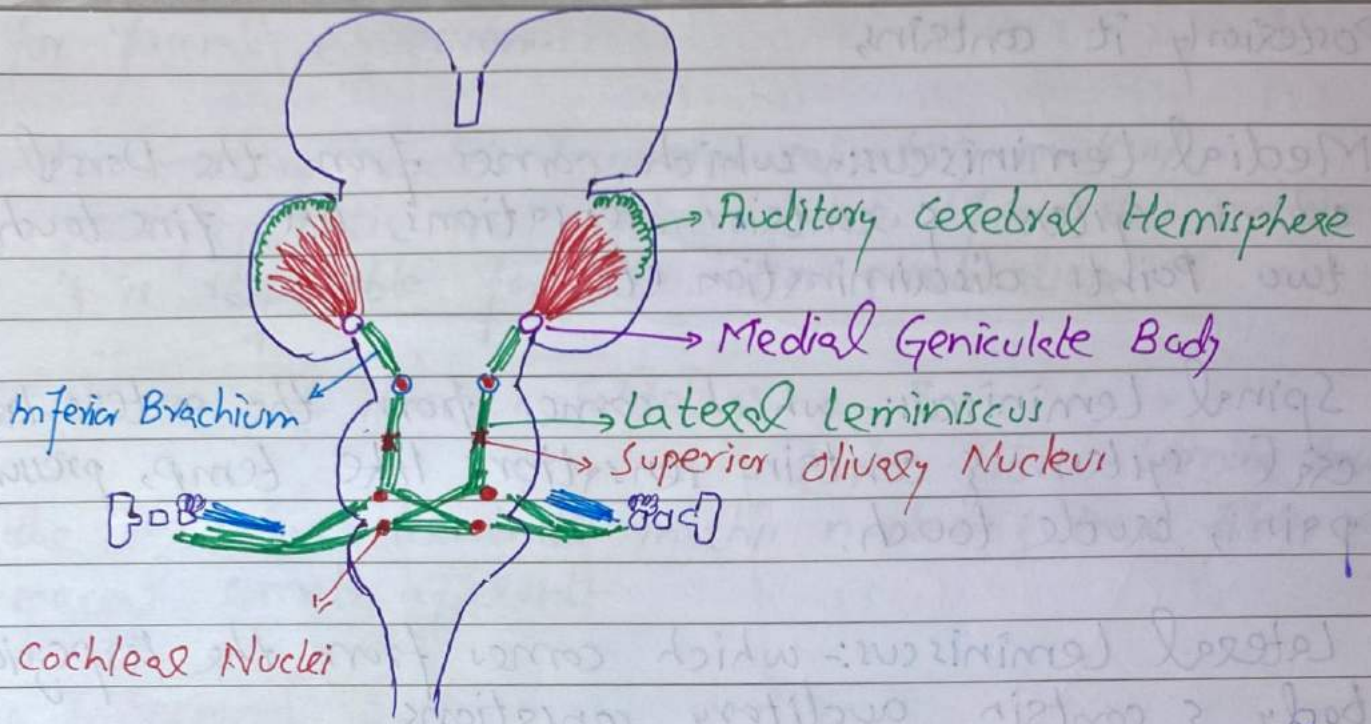 Auditory Cerebral Hemisphere
Medial Geniculate Body
Inferior Brachium
Lateral Leminiscus
Superior olivary Nucleus
Cochlear Nuclei